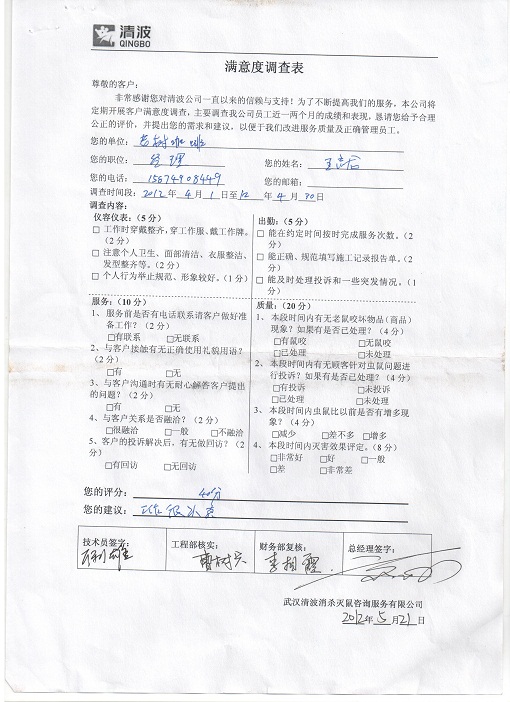 清波
QINGBO
满意度调查表
尊敬的客户：
非常感谢您对清波公司一直以来的信赖与支持！为了不断提高我们的服务。本公司将
定期开展客户满意度调查，主要调查我公司员工近一两个月的成绩和表现，恳请您给予合理
公正的评价，并提出您的需求和建议，以便于我们改进服务质量及正确管理员工。
您的单位：
您的职位：经理 您的姓名：
您的电话：15674908449 您的邮箱：
调查时间段：2012年4月1日至12年4月30日
调查内容：
仪容仪表：（5分）
□ 工作时穿戴整齐，穿工作服、戴工作牌。
（2分）
□ 注意个人卫生、面部清洁、衣服整洁、
发型整齐等。（2分）
□ 个人行为举止规范、形象较好。（1分）
出勤：（5分）
□ 能在约定时间按时完成服务次数。（2
分）
□ 能正确、规范填写施工记录报告单。（2
分）
□ 能及时处理投诉和一些突发情况。（1
分）
服务：（10分）
1、服务前是否有电话联系请客户做好准
备工作？（2分）
□有联系 □无联系
2、与客户接触有无正确使用礼貌用语？
（2分）
□有 □无
3、与客户沟通时有无耐心解答客户提出
的问题？（2分）
□有 □无
4、与客户关系是否融洽？（2分）
□很融洽 □一般 □不融洽
5、客户的投诉解决后，有无做回访？（2
分）
□有回访 □无回访
质量：（20分）
1、本段时间内有无老鼠咬坏物品（商品）
现象？如果有是否已处理？（4分）
□有鼠咬 □无鼠咬
□已处理 □未处理
2、本段时间内有无顾客针对虫鼠问题进
行投诉？如果有是否已处理？（4分）
□有投诉 □未投诉
□已处理 □未处理
3、本段时间内虫鼠比以前是否有增多现
象？（4分）
□减少 □差不多 □增多
4、本段时间内灭害效果评定。（8分）
□非常好 □好 □一般
□差 □非常差
您的评分：40分
您的建议：
技术员签字： 工程部核实： 财务部复核： 总经理签字：
曹树兴
武汉清波消杀灭鼠咨询服务有限公司
2012年5月21日